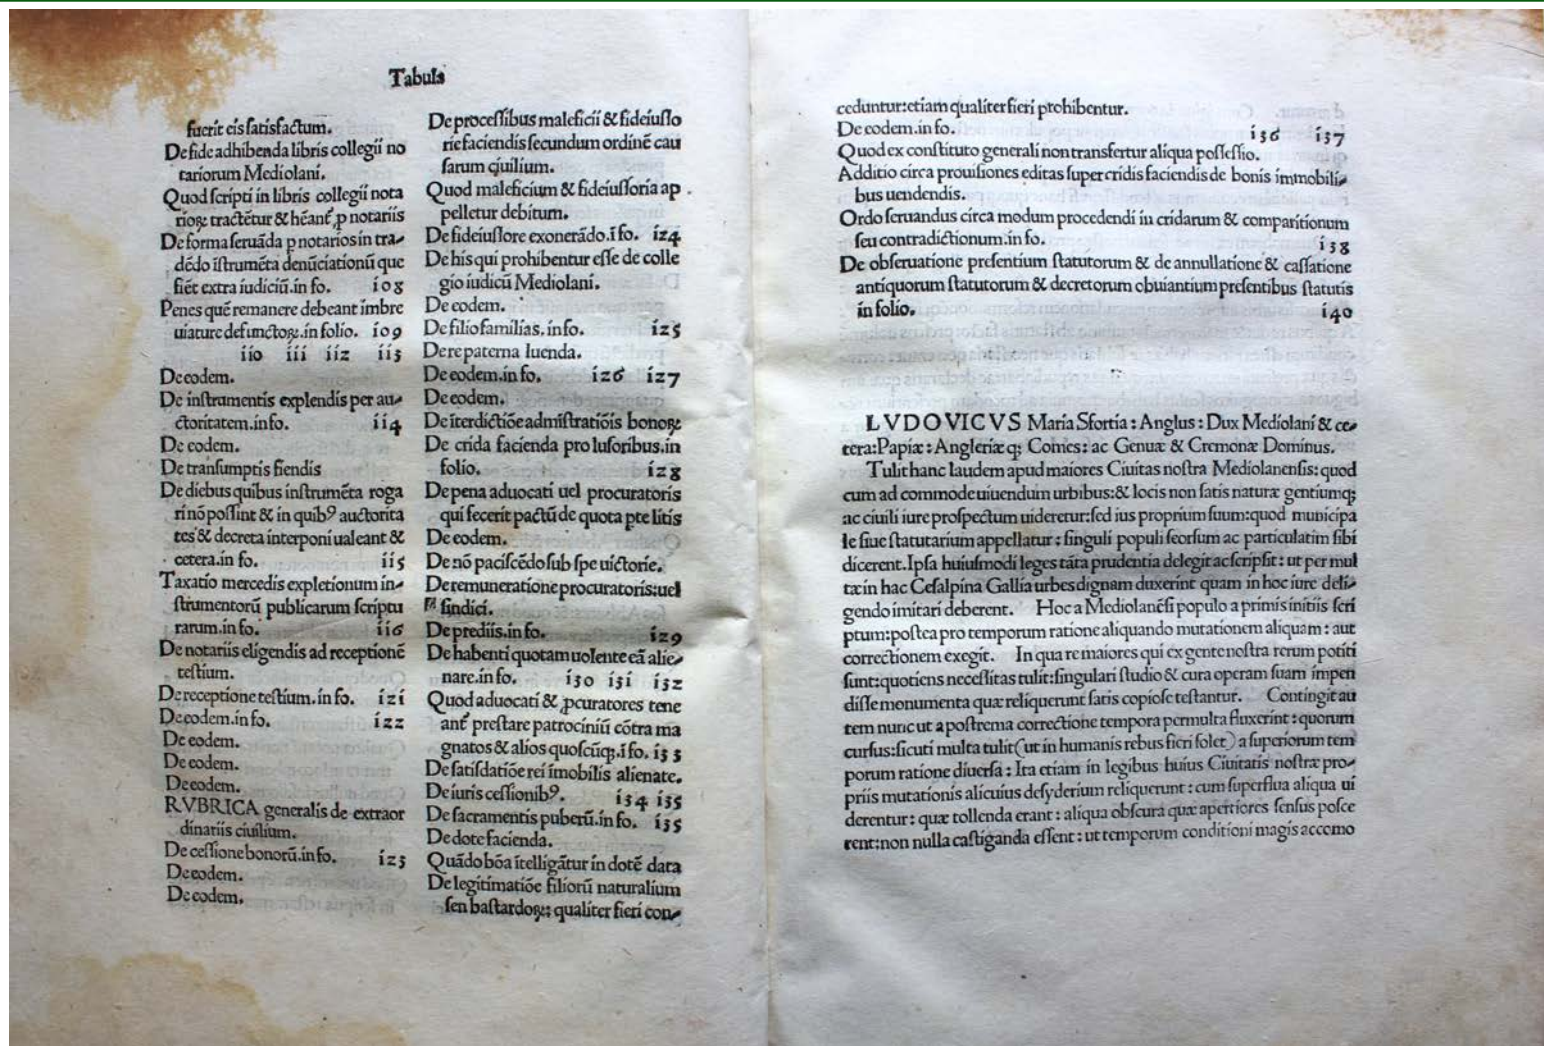 Tabula
fuerit eis satisfactum.
De fide adhibenda libris collegii no
tariorum Mediolani.
Quod scripti in libris collegii nota
rioꝝ tractẽtur & hẽant᷑ ꝑ notariis
De forma seruãda ꝑ notarios in tra-
dẽdo ĩstrumẽta denũciationũ que
fiẽt extra iudiciũ.in fo. 108
Penes quẽ remanere debeant imbre
uiature defunctoꝝ.in folio. 109
110 111 112 113
De eodem.
De instrumentis explendis per au-
ctoritatem.in fo. 114
De eodem.
De transumptis fiendis
De diebus quibus instrumẽta roga
ri nõ possint & in quibꝰ auctorita
tes & decreta interponi ualeant &
cetera.in fo. 115
Taxatio mercedis expletionum in-
strumentorũ publicarum scriptu
rarum.in fo. 116
De notariis eligendis ad receptionẽ
testium.
De receptione testium.in fo. 121
De eodem.in fo. 122
De eodem.
De eodem.
De eodem.
RVBRICA generalis de extraor
dinariis ciuilium.
De cessione bonorũ.in fo. 123
De eodem.
De eodem.
De processibus maleficii & fideiusso
rie faciendis secundum ordinẽ cau
sarum ciuilium.
Quod maleficium & fideiussoria ap
pelletur debitum.
De fideiussore exonerãdo.ĩ fo. 124
De his qui prohibentur esse de colle
gio iudicũ Mediolani.
De eodem.
De filiofamilias.in fo. 125
De re paterna luenda.
De eodem.in fo. 126 127
De eodem.
De ĩterdictiõe admĩstratiõis bonoꝝ
De crida facienda pro lusoribus.in
folio. 128
De pena aduocati uel procuratoris
qui fecerit pactũ de quota ꝑte litis
De eodem.
De nõ paciscẽdo sub spe uictorie.
De remuneratione procuratoris:uel
sindici.
De prediis.in fo. 129
De habenti quotam uolente eã alie-
nare.in fo. 130 131 132
Quod aduocati & ꝓcuratores tene
ant᷑ prestare patrociniũ cõtra ma
gnatos & alios quoscũqꝫ.ĩ fo. 133
De satisdatiõe rei ĩmobilis alienate.
De iuris cessionibꝰ. 134 135
De sacramentis puberũ.in fo. 135
De dote facienda.
Quãdo bõa ĩtelligãtur in dotẽ data
De legitimatiõe filiorũ naturalium
sen bastardoꝝ: qualiter fieri con-
ceduntur:etiam qualiter fieri prohibentur.
De eodem.in fo. 136 137
Quod ex constituto generali non transfertur aliqua possessio.
Additio circa prouisiones editas super cridis faciendis de bonis immobili-
bus uendendis.
Ordo seruandus circa modum procedendi in cridarum & comparitionum
seu contradictionum.in fo. 138
De obseruatione presentium statutorum & de annullatione & cassatione
antiquorum statutorum & decretorum obuiantium presentibus statutis
in folio. 140
LVDOVICVS Maria Sfortia: Anglus: Dux Mediolani & ce-
tera:Papiæ: Angleriæqꝫ Comes: ac Genuæ & Cremonæ Dominus.
Tulit hanc laudem apud maiores Ciuitas nostra Mediolanensis: quod
cum ad commode uiuendum urbibus:& locis non satis naturæ gentiumqꝫ
ac ciuili iure prospectum uideretur:sed ius proprium suum:quod municipa
le siue statutarium appellatur: singuli populi seorsum ac particulatim sibi
dicerent.Ipsa huiusmodi leges tãta prudentia delegit ac scripsit: ut per mul
tæ in hac Cesalpina Gallia urbes dignam duxerint quam in hoc iure deli-
gendo imitari deberent. Hoc a Mediolanẽsi populo a primis initiis scri
ptum:postea pro temporum ratione aliquando mutationem aliquam: aut
correctionem exegit. In qua re maiores qui ex gente nostra rerum potiti
sunt:quotiens necessitas tulit:singulari studio & cura operam suam impen
disse monumenta quæ reliquerunt satis copiose testantur. Contingit au
tem nunc ut a postrema correctione tempora permulta fluxerint: quorum
cursus:sicuti multa tulit(ut in humanis rebus fieri solet) a superiorum tem
porum ratione diuersa: Ita etiam in legibus huius Ciuitatis nostræ pro-
priis mutationis alicuius desyderium reliquerunt: cum superflua aliqua ui
derentur: quæ tollenda erant: aliqua obscura quæ apertiores sensus posce
rent:non nulla castiganda essent: ut temporum conditioni magis accomo